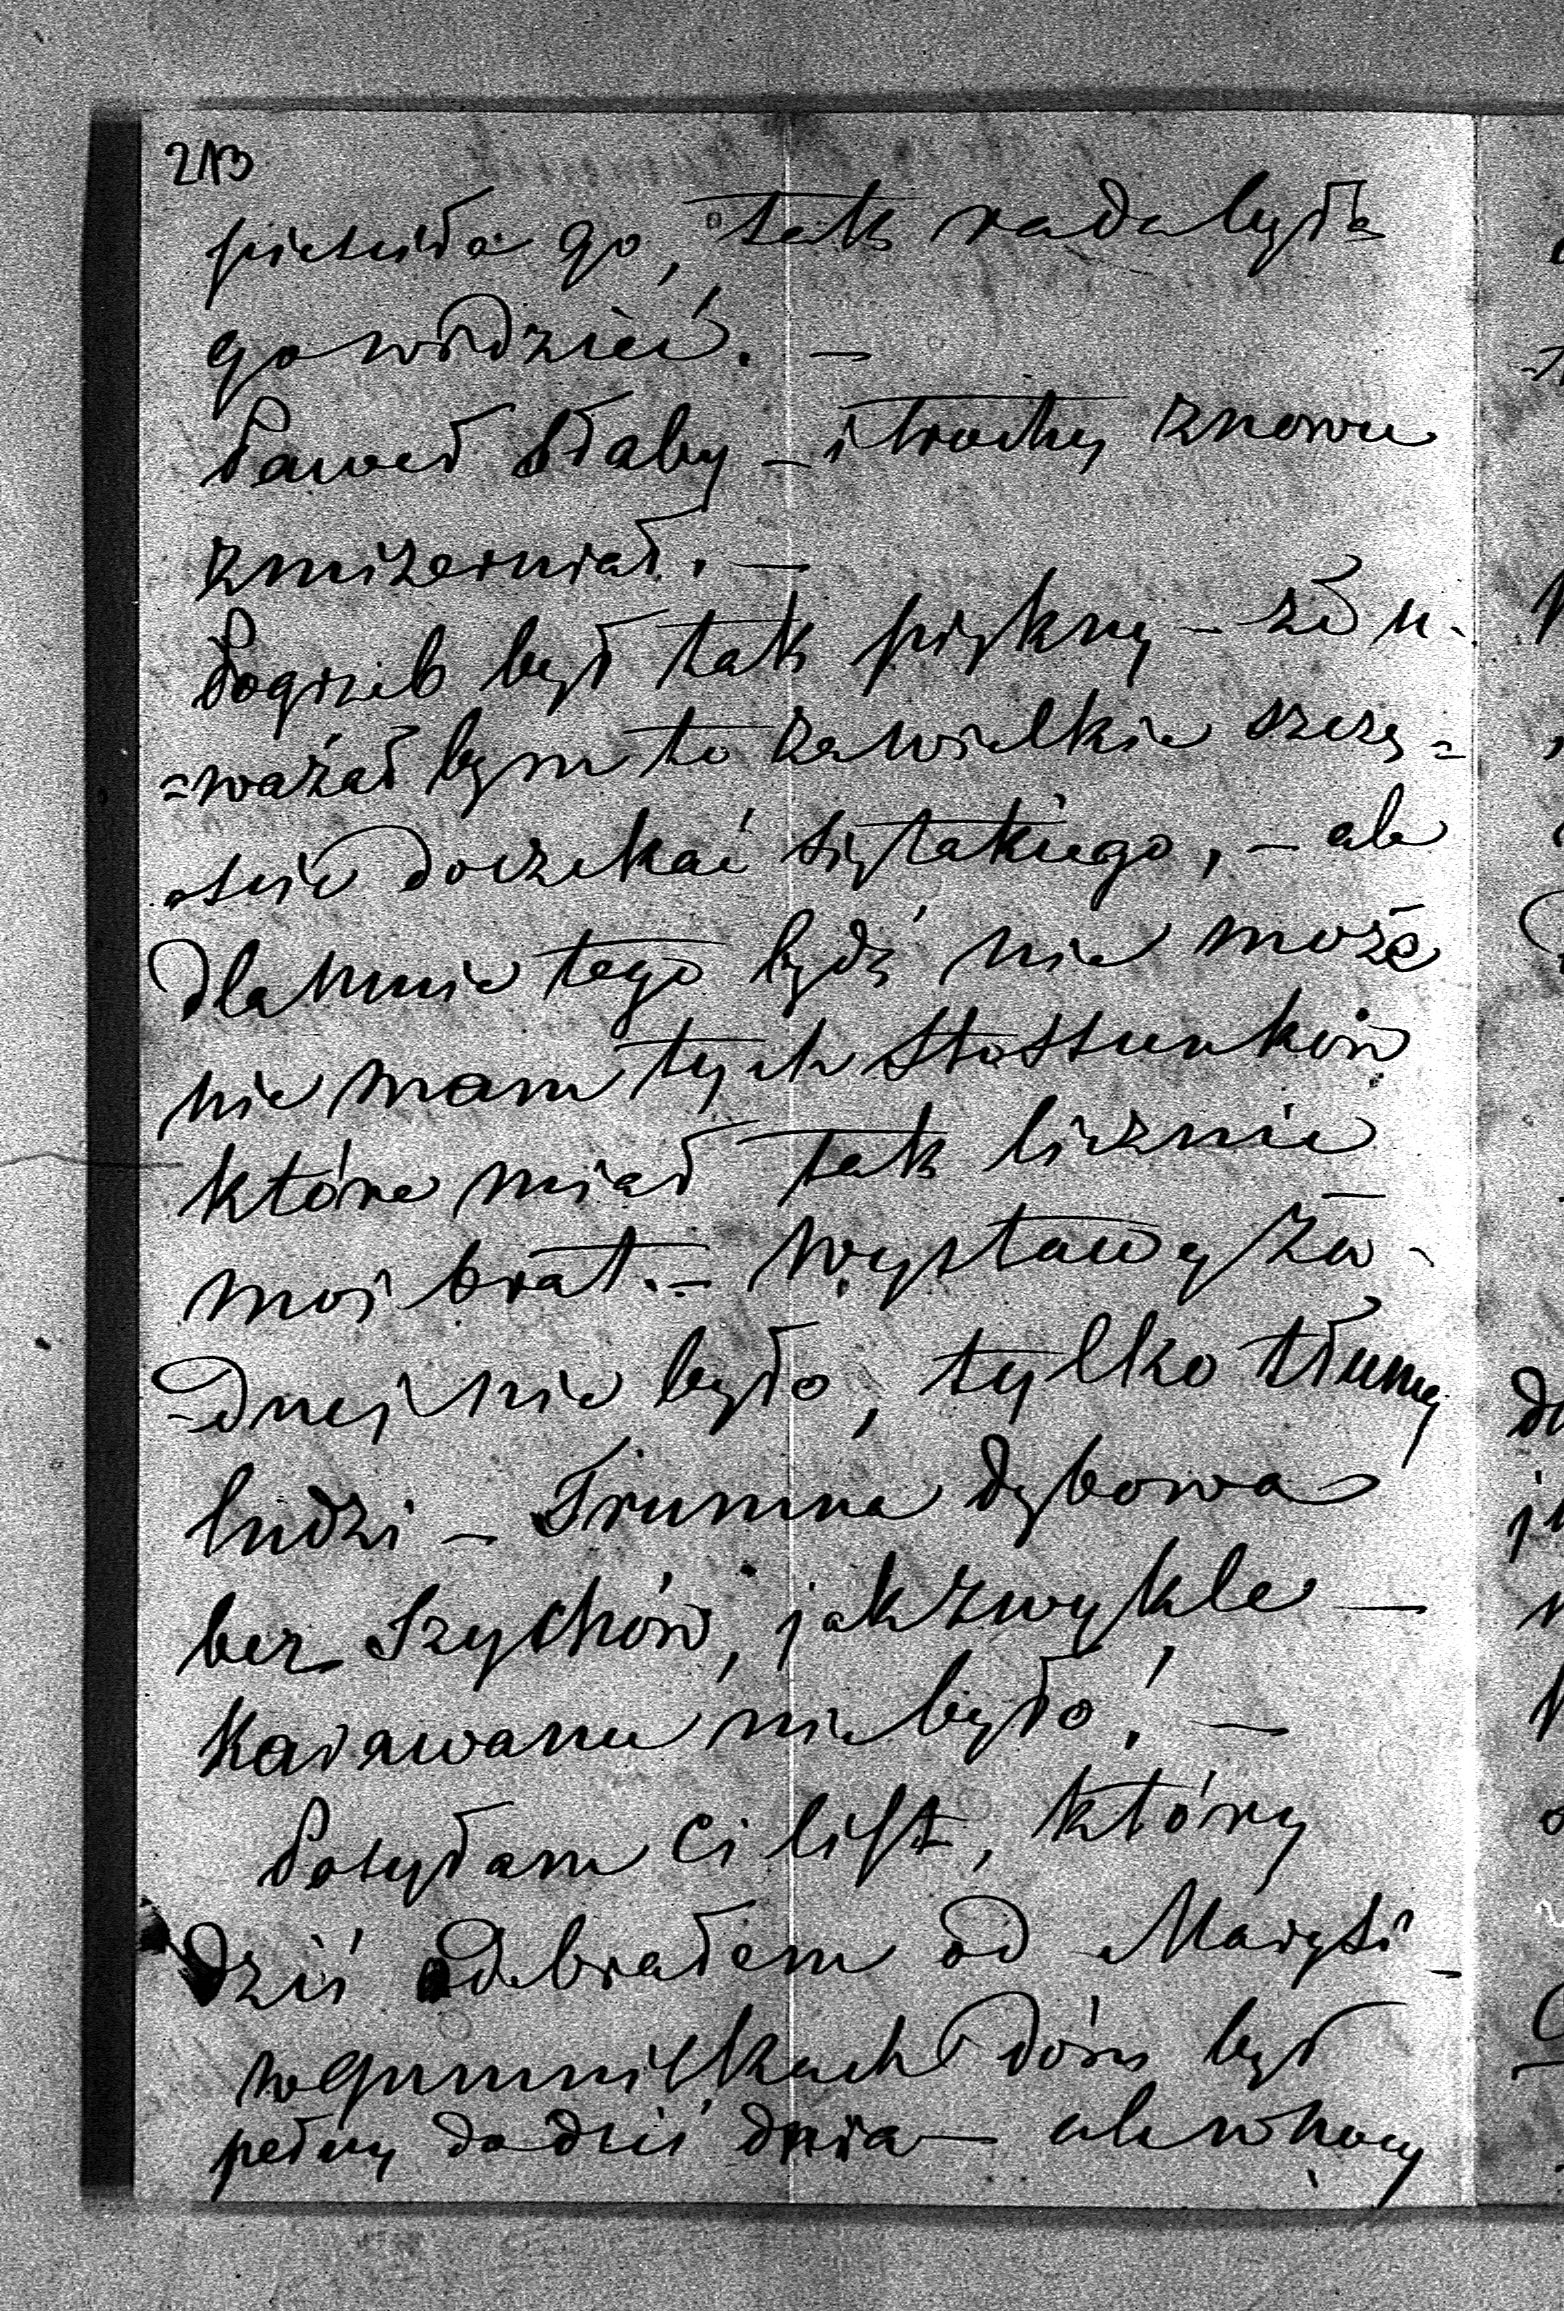 213
pieściła go, tak rada była
go widzieć. –
Paweł słaby – i trochę znowu
zmizerniał. –
Pogrzeb był tak piękny – że u-
=ważał bym to za wielkie szczę=
ście doczekać się takiego, – ale
dla mnie tego bydź nie może
nie mam tych stossunków
które miał tak licznie
moj brat. – Wystawy ża-
-dnej nie było, tylko tłumy
ludzi – Trumna dębowa
bez szychów, jak zwykle –
Karawanu nie było! –
Posyłam Ci list, który
dziś odebrałem od Marysi –
w Gumniskach dóm był
pełny do dziś dnia – ale w nocy